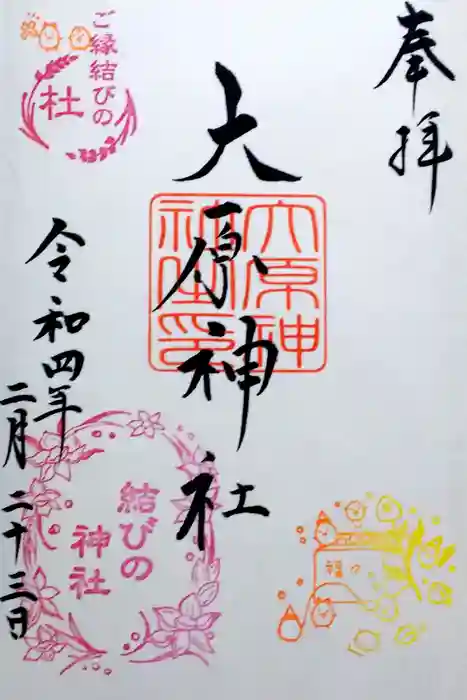 奉拝
大原神社
大原神社印
ご縁結びの
杜
令和四年
二月二十三日
結びの
神社
福々